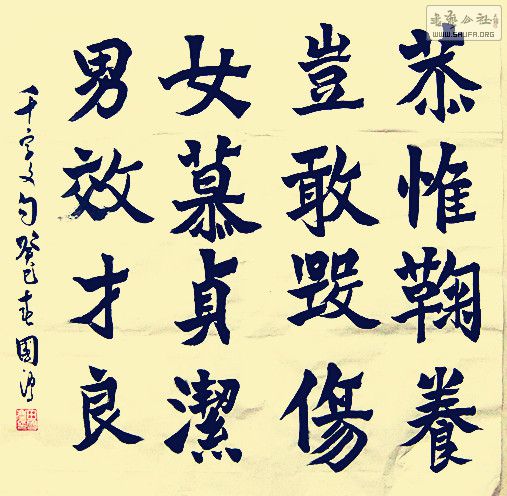 恭惟鞠養
豈敢毀傷
女慕貞潔
男效才良
千字文句癸巳春國
WWW.SHUFA.ORG